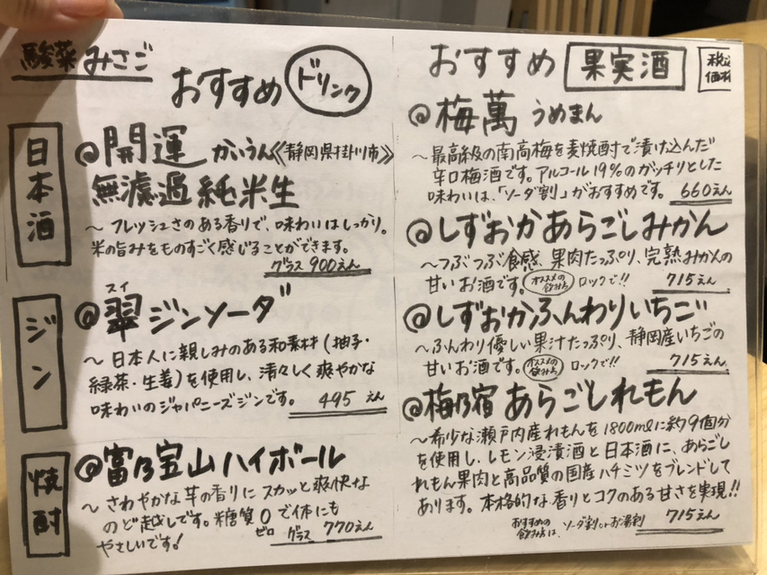 酸菜みさご
おすすめ ドリンク
日本酒
@開運 かいうん《静岡県掛川市》
無濾過純米生
〜 フレッシュさのある香りで、味わいはしっかり。
米の旨みをものすごく感じることができます。
グラス 900えん
ジン
スイ
@翠ジンソーダ
〜 日本人に親しみのある和素材(柚子・
緑茶・生姜)を使用し、清々しく爽やかな
味わいのジャパニーズジンです。 495 えん
焼酎
@富乃宝山ハイボール
〜 さわやかな芋の香りに スカッと爽快な
のど越しです。糖質0で体にも
ゼロ
やさしいです! グラス 770えん
おすすめ 果実酒
税込
価格
@梅萬 うめまん
〜最高級の南高梅を麦焼酎で漬け込んだ
辛口梅酒です。アルコール19%のガッチリとした
味わいは、「ソーダ割」がおすすめです。 660えん
@しずおかあらごしみかん
〜つぶつぶ食感、果肉たっぷり、完熟みかんの
甘いお酒です。 オススメの飲み方 ロックで!! 715えん
@しずおかふんわりいちご
〜ふんわり優しい果汁たっぷり、静岡産いちごの
甘いお酒です。 オススメの飲み方 ロックで!! 715えん
@梅乃宿 あらごしれもん
〜希少な瀬戸内産れもんを1800mlに約9個分
を使用し、レモン浸漬酒と日本酒に、あらごし
れもん果肉と高品質の国産ハチミツをブレンドして
あります。本格的な香りとコクのある甘さを実現!!
おすすめの飲み方は、ソーダ割orお湯割 715えん